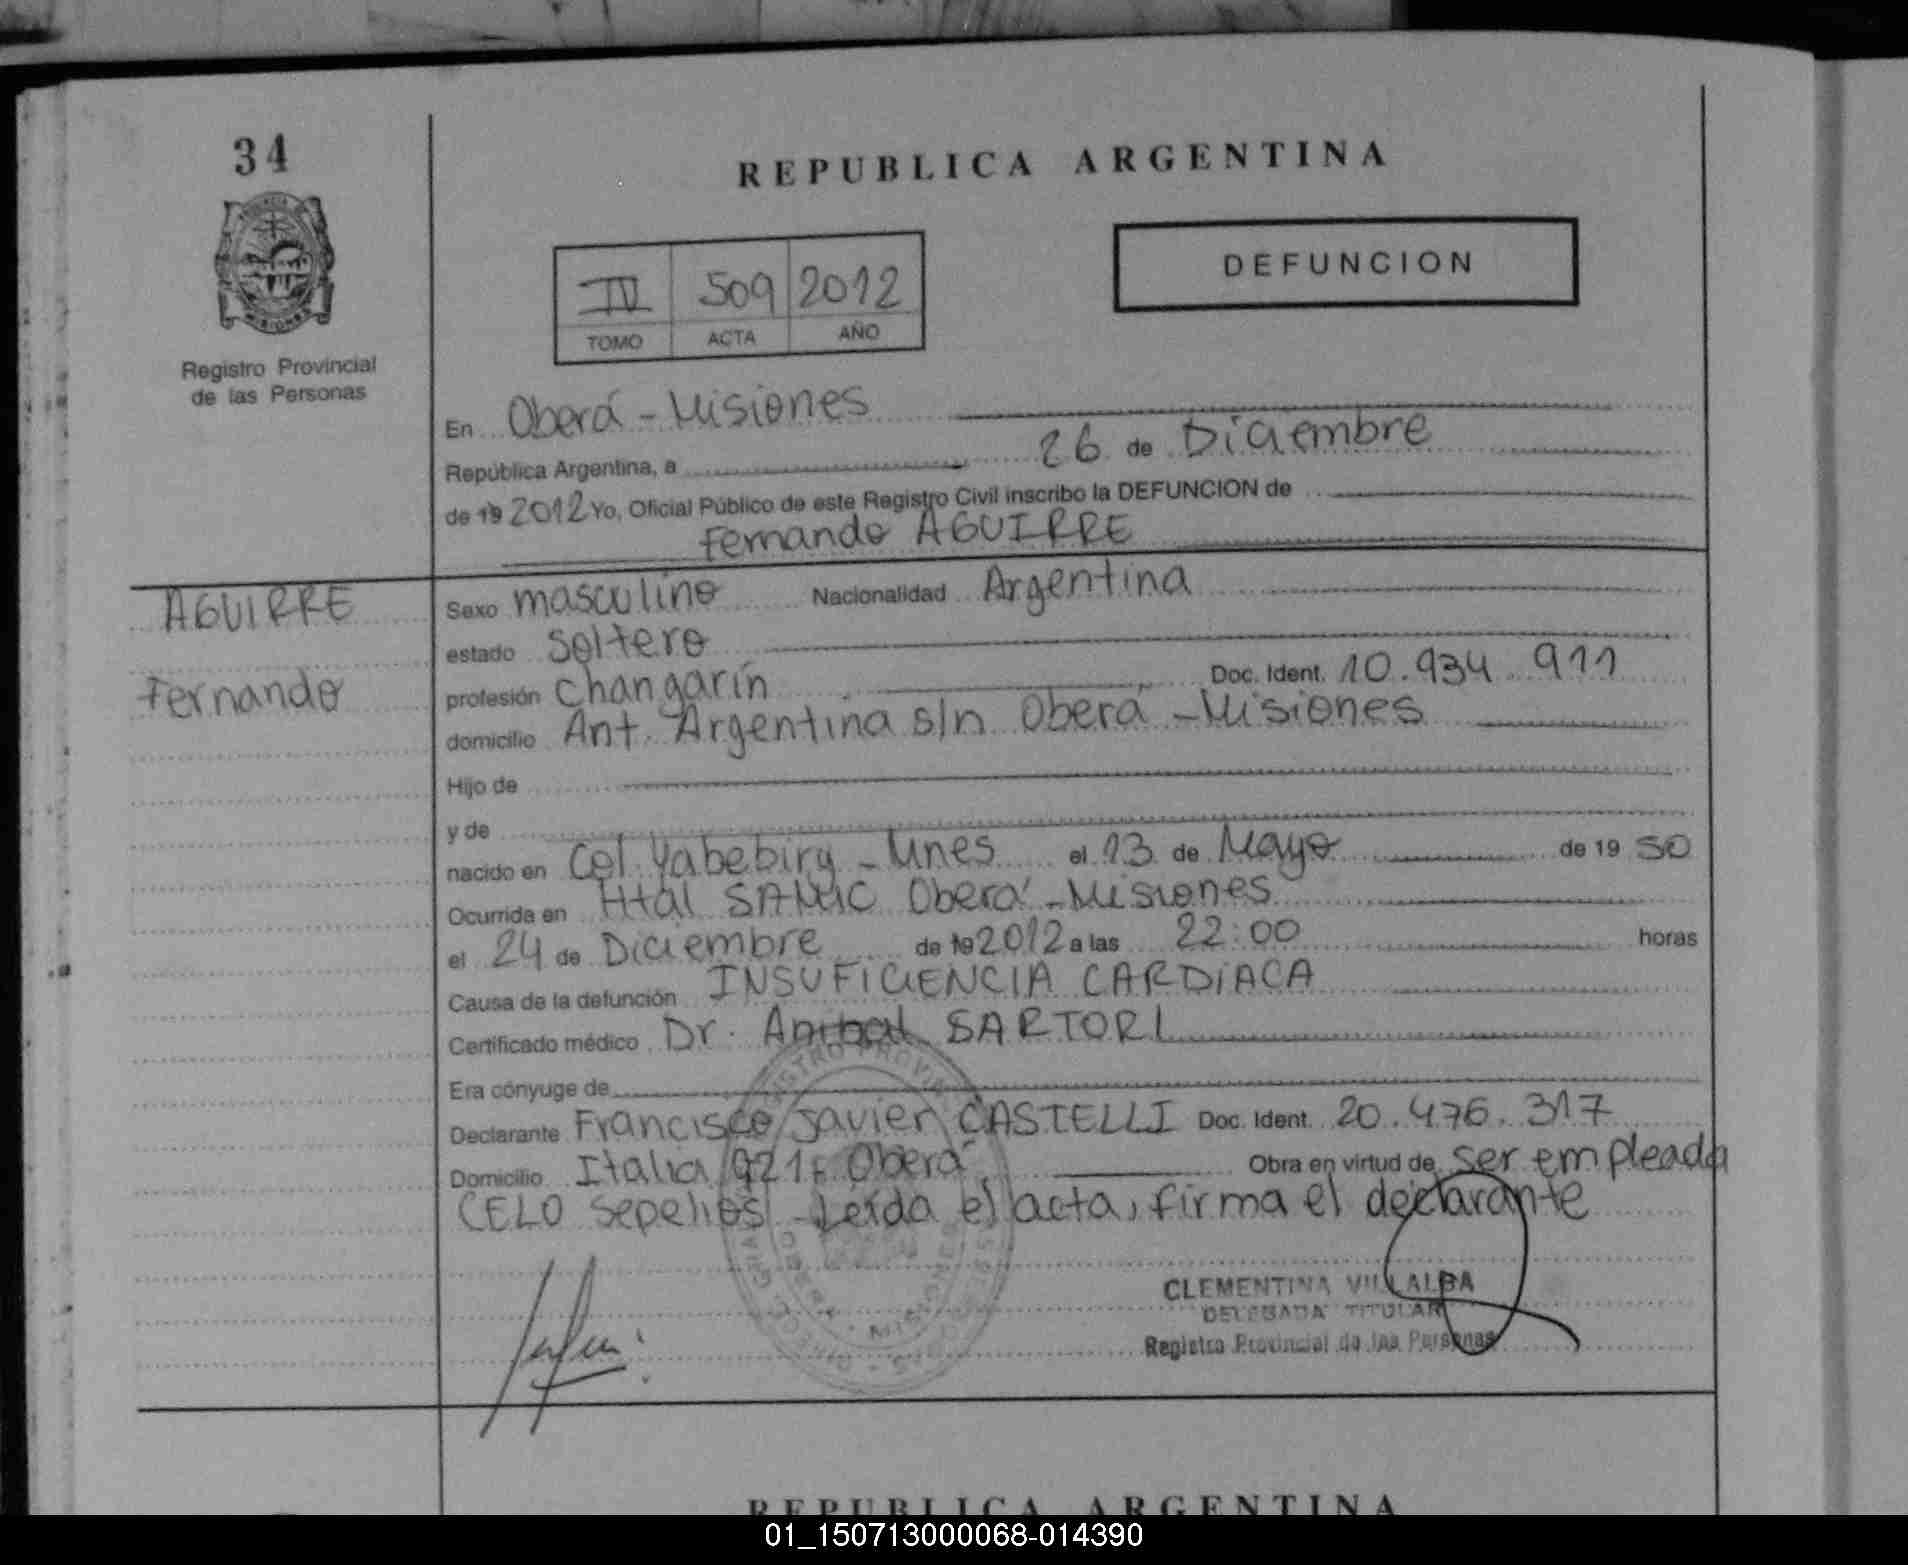 34
REPUBLICA ARGENTINA
DEFUNCION
IV 509 2012
TOMO ACTA AÑO
Registro Provincial
de las Personas
En Oberá - Misiones
República Argentina, a 26 de Diciembre
de 19 2012 Yo, Oficial Público de este Registro Civil inscribo la DEFUNCION de
Fernando AGUIRRE
AGUIRRE
Fernando
Sexo masculino Nacionalidad Argentina
estado Soltero
profesión Changarín Doc. Ident. 10.934.911
domicilio Ant. Argentina s/n Oberá - Misiones
Hijo de
y de
nacido en Col. Yabebiry - Mnes el 13 de Mayo de 19 50
Ocurrida en Htal SAMIC Oberá - Misiones
el 24 de Diciembre de 19 2012 a las 22:00 horas
Causa de la defunción INSUFICIENCIA CARDIACA
Certificado médico Dr. Anibal SARTORI
Era cónyuge de
Declarante Francisco Javier CASTELLI Doc. Ident. 20.476.317
Domicilio Italia 921 - Oberá Obra en virtud de ser empleada
CELO Sepelios - Leída el acta, firma el declarante
CLEMENTINA VILLALBA
DELEGADA TITULAR
Registro Provincial de las Personas
REPUBLICA ARGENTINA
01_150713000068-014390